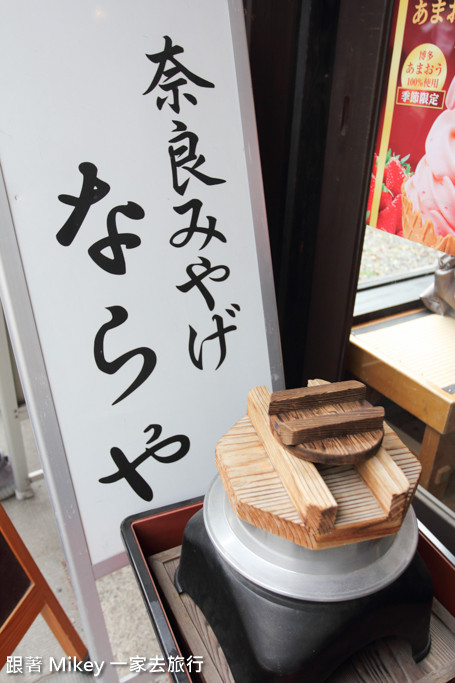 奈良みやげ
ならや
あまお
博多
あまおう
100%使用
季節限定
跟著 Mikey 一家去旅行